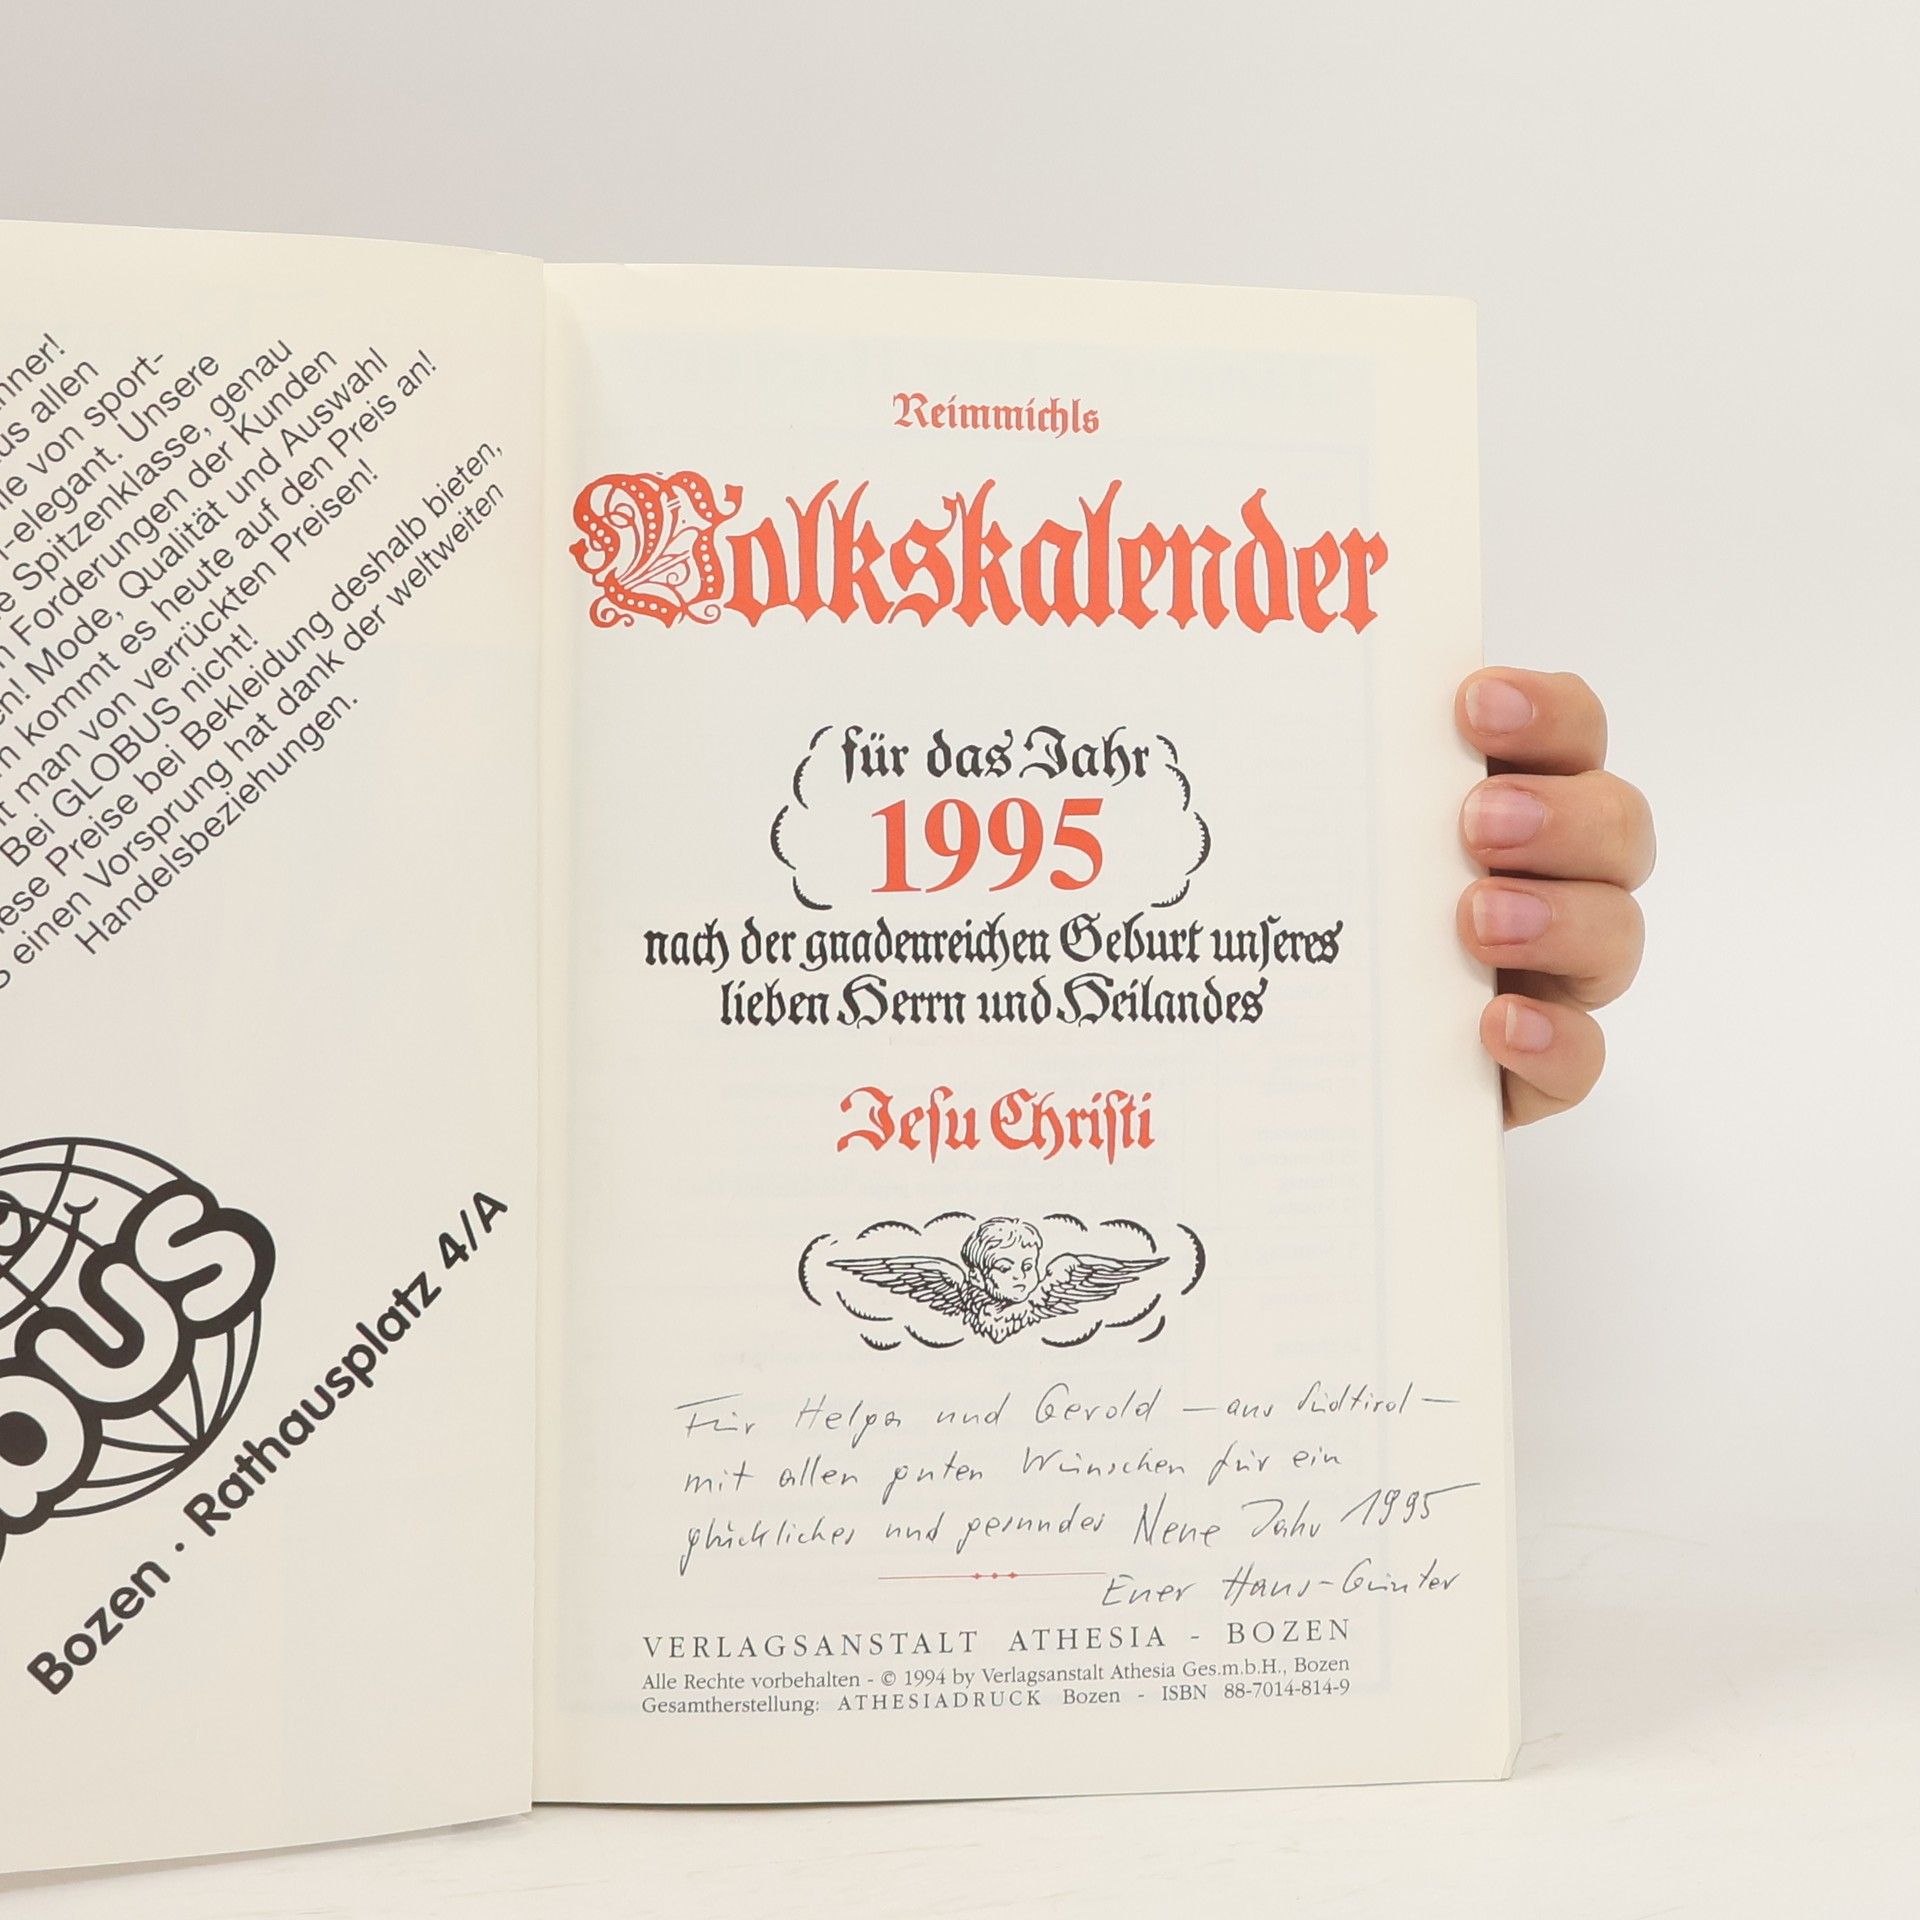 nner!
us allen
le von sport-
-elegant. Unsere
e Spitzenklasse, genau
n Forderungen der Kunden
en! Mode, Qualität und Auswahl
n kommt es heute auf den Preis an!
t man von verrückten Preisen!
Bei GLOBUS nicht!
ese Preise bei Bekleidung deshalb bieten,
einen Vorsprung hat dank der weltweiten
Handelsbeziehungen.
BUS
Bozen · Rathausplatz 4/A
Reimmichls
Volkskalender
für das Jahr
1995
nach der gnadenreichen Geburt unseres
lieben Herrn und Heilandes
Jesu Christi
Für Helga und Gerold – aus Südtirol –
mit allen guten Wünschen für ein
glückliches und gesundes Neue Jahr 1995
Euer Hans-Günter
VERLAGSANSTALT ATHESIA - BOZEN
Alle Rechte vorbehalten - © 1994 by Verlagsanstalt Athesia Ges.m.b.H., Bozen
Gesamtherstellung: ATHESIADRUCK Bozen - ISBN 88-7014-814-9